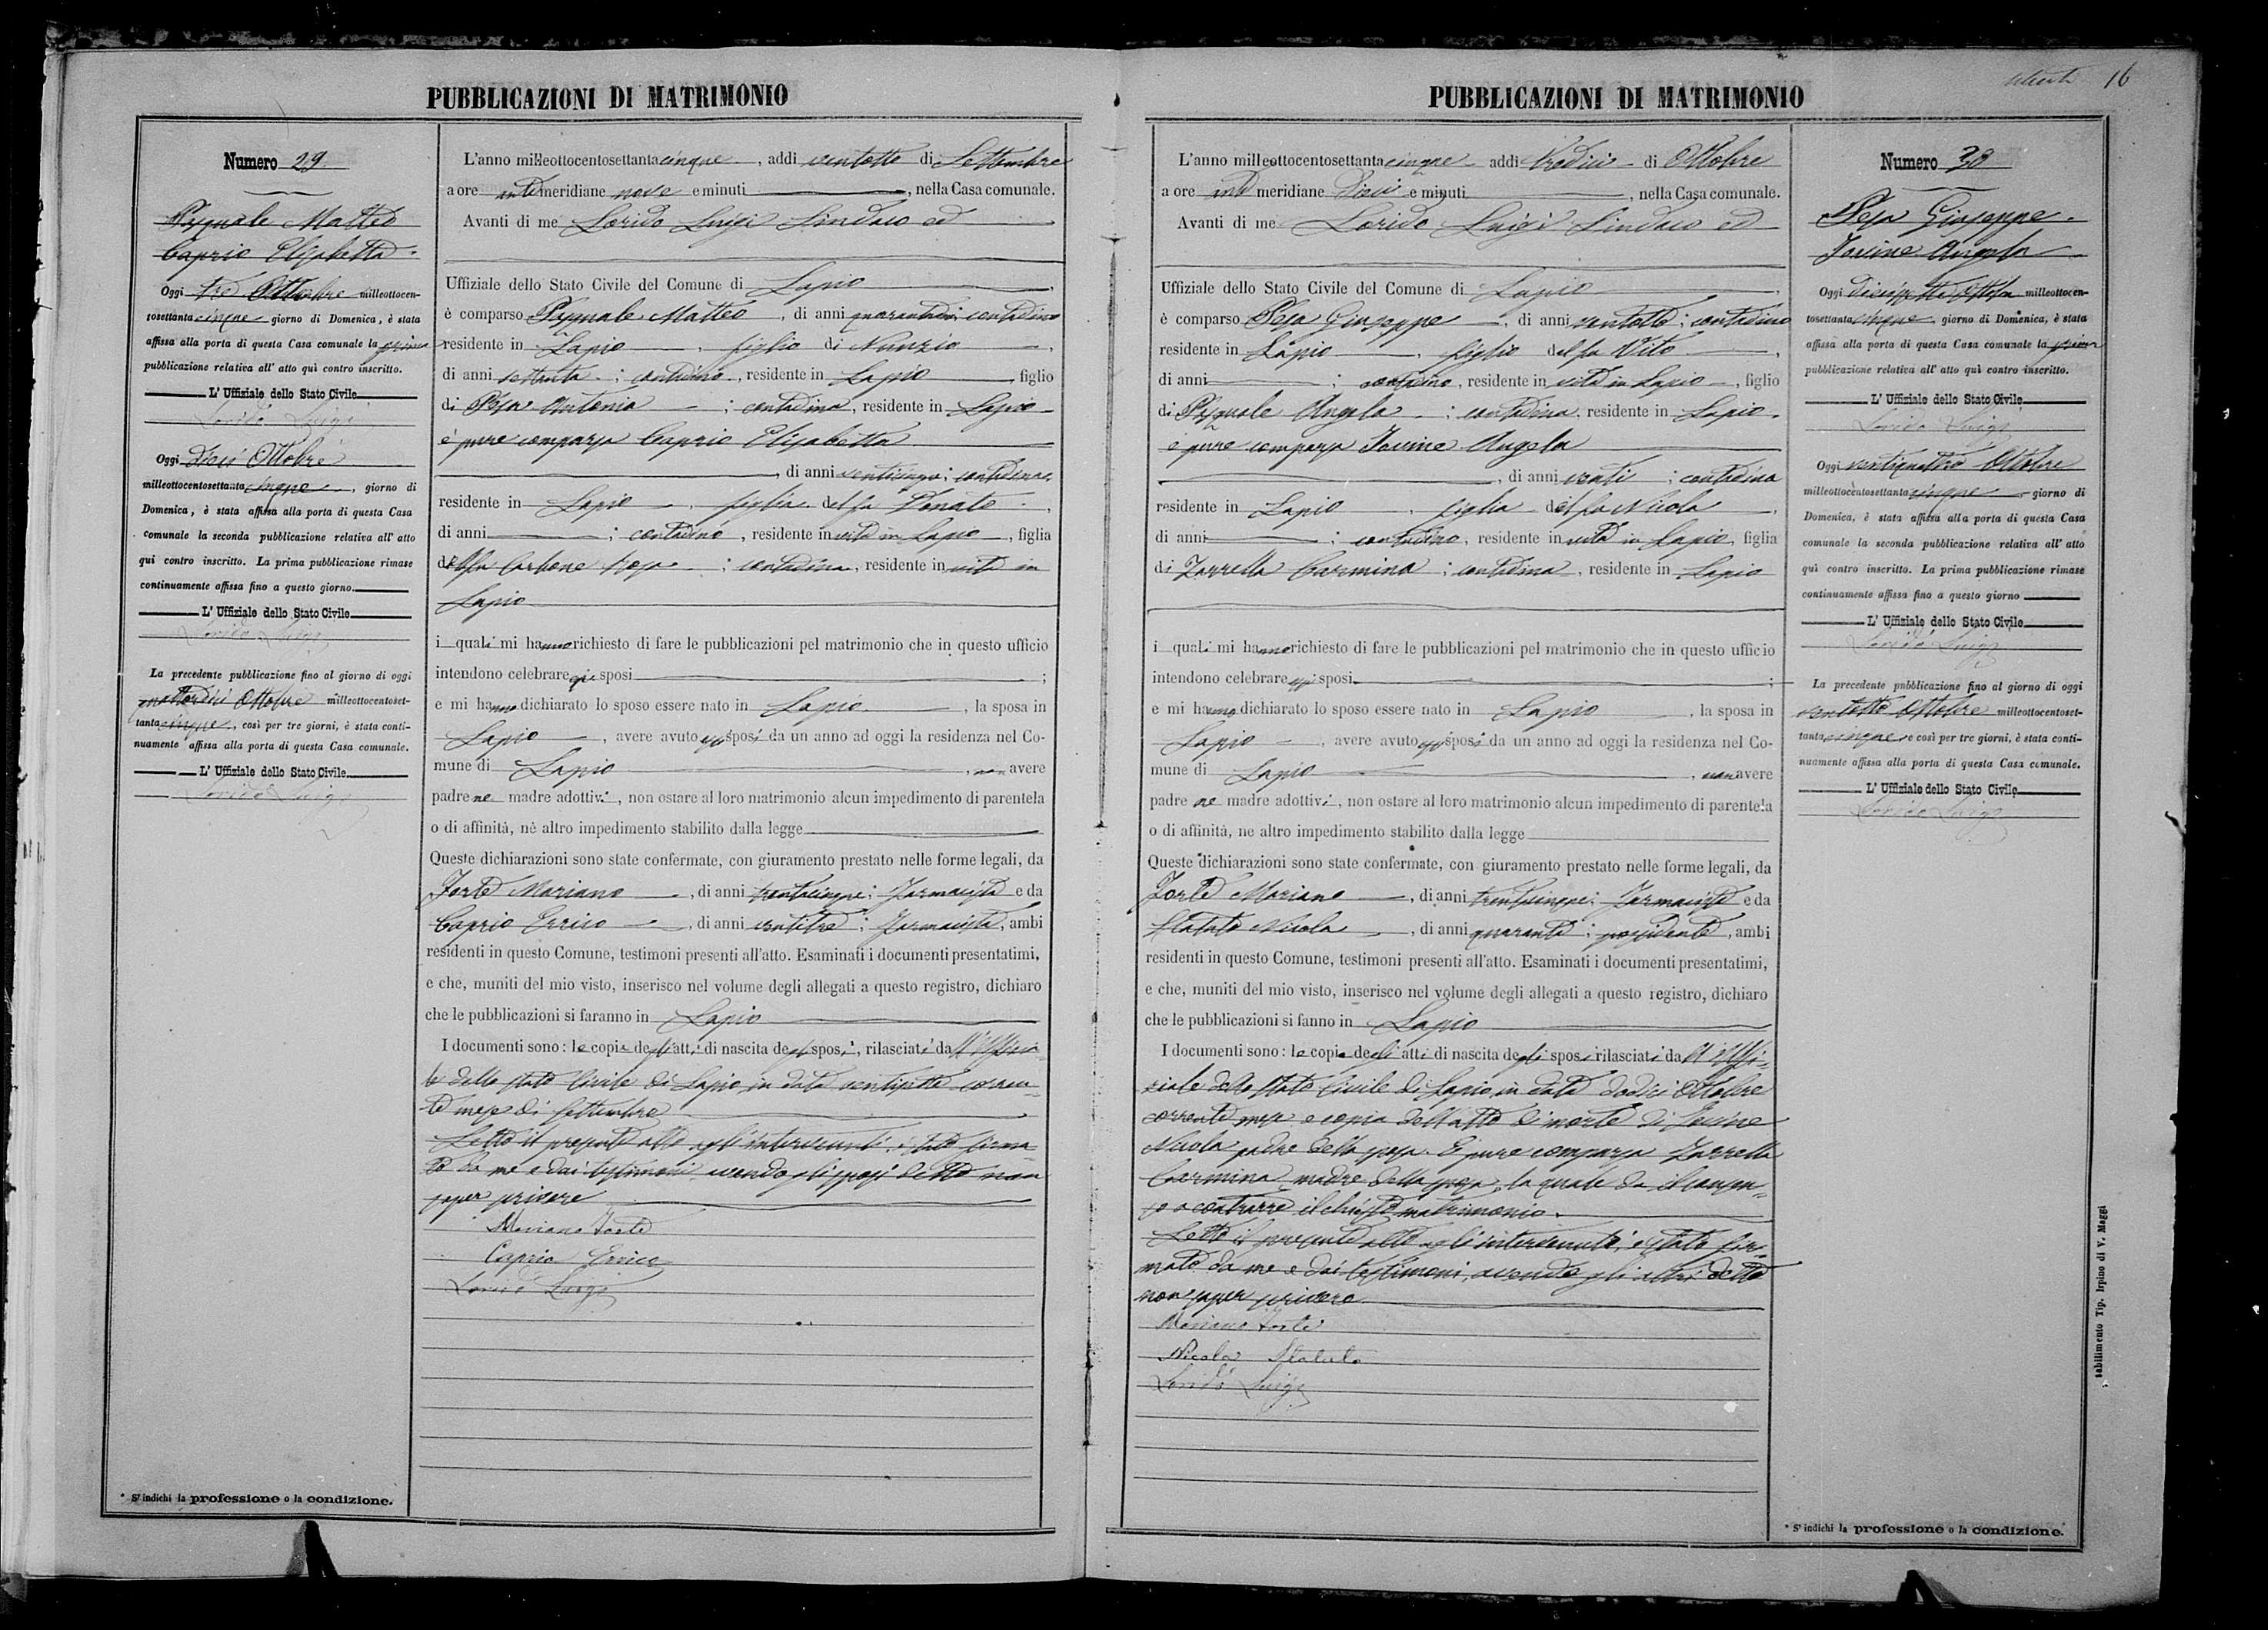 PUBBLICAZIONI DI MATRIMONIO
Numero 29
Pasquale Matteo
Caprio Elisabetta
Oggi tre Ottobre milleottocen-
tosettanta cinque giorno di Domenica, è stata
affissa alla porta di questa Casa comunale la prima
pubblicazione relativa all' atto quì contro inscritto.
L' Uffiziale dello Stato Civile
Lorido Luigi
Oggi dieci Ottobre
milleottocentosettanta cinque, giorno di
Domenica, è stata affissa alla porta di questa Casa
comunale la seconda pubblicazione relativa all' atto
qui contro inscritto. La prima pubblicazione rimase
continuamente affissa fino a questo giorno.
L' Uffiziale dello Stato Civile
Lorido Luigi
La precedente pubblicazione fino al giorno di oggi
quattordici Ottobre milleottocentoset-
tanta cinque, così per tre giorni, è stata conti-
nuamente affissa alla porta di questa Casa comunale.
L' Uffiziale dello Stato Civile
Lorido Luigi
* S' indichi la professione o la condizione.
L'anno milleottocentosettanta cinque, addì ventotto di Settembre
a ore anti meridiane nove e minuti, nella Casa comunale.
Avanti di me Lorido Luigi Sindaco ed
Uffiziale dello Stato Civile del Comune di Lapio
è comparso Pasquale Matteo, di anni contadino
residente in Lapio, figlio di Nunzio,
di anni settanta; contadino, residente in Lapio, figlio
di Antonia; contadina, residente in Lapio
è pure comparsa Caprio Elisabetta
, di anni venticinque; contadina,
residente in Lapio, figlia del fu Donato,
di anni; contadino, residente in vita in Lapio, figlia
della fu Carbone Rosa; contadina, residente in vita in
Lapio
i quali mi hanno richiesto di fare le pubblicazioni pel matrimonio che in questo ufficio
intendono celebrare essi sposi;
e mi hanno dichiarato lo sposo essere nato in Lapio, la sposa in
Lapio, avere avuto essi sposi da un anno ad oggi la residenza nel Co-
mune di Lapio, non avere
padre ne madre adottivi, non ostare al loro matrimonio alcun impedimento di parentela
o di affinità, nè altro impedimento stabilito dalla legge
Queste dichiarazioni sono state confermate, con giuramento prestato nelle forme legali, da
Forte Mariano, di anni trentacinque; Farmacista e da
Caprio Errico, di anni ventitre; Farmacista, ambi
residenti in questo Comune, testimoni presenti all'atto. Esaminati i documenti presentatimi,
e che, muniti del mio visto, inserisco nel volume degli allegati a questo registro, dichiaro
che le pubblicazioni si faranno in Lapio
I documenti sono: le copie degli atti di nascita degli sposi, rilasciati dall'Uffizia-
le dello stato Civile di Lapio in data ventisette corren-
te mese di Settembre
Letto il presente atto agli intervenuti, è stato firma-
to da me e dai testimoni avendo gli sposi detto non
saper scrivere
Mariano Forte
Caprio Errico
Lorido Luigi
PUBBLICAZIONI DI MATRIMONIO
16
L'anno milleottocentosettanta cinque addì tredici di Ottobre
a ore anti meridiane dieci e minuti, nella Casa comunale.
Avanti di me Lorido Luigi Sindaco ed
Uffiziale dello Stato Civile del Comune di Lapio
è comparso Pesa Giuseppe, di anni ventotto; contadino
residente in Lapio, figlio del fu Vito,
di anni; contadino, residente in vita in Lapio, figlio
di Pasquale Angela; contadina, residente in Lapio
è pure comparsa Iovine Angela
, di anni venti; contadina
residente in Lapio, figlia del fu Nicola,
di anni; contadino, residente in vita in Lapio, figlia
di Zarrella Carmina; contadina, residente in Lapio
i quali mi hanno richiesto di fare le pubblicazioni pel matrimonio che in questo ufficio
intendono celebrare essi sposi;
e mi hanno dichiarato lo sposo essere nato in Lapio, la sposa in
Lapio, avere avuto essi sposi da un anno ad oggi la residenza nel Co-
mune di Lapio, non avere
padre ne madre adottivi, non ostare al loro matrimonio alcun impedimento di parentela
o di affinità, ne altro impedimento stabilito dalla legge
Queste dichiarazioni sono state confermate, con giuramento prestato nelle forme legali, da
Forte Mariano, di anni trentacinque; Farmacista e da
Statuto Nicola, di anni quaranta; possidente, ambi
residenti in questo Comune, testimoni presenti all'atto. Esaminati i documenti presentatimi,
e che, muniti del mio visto, inserisco nel volume degli allegati a questo registro, dichiaro
che le pubblicazioni si fanno in Lapio
I documenti sono: le copie degli atti di nascita degli sposi rilasciati dall'Uffi-
ziale dello Stato Civile di Lapio in data dodici Ottobre
corrente mese e copia dell'atto di morte di Iovine
Nicola padre della sposa. È pure comparsa Zarrella
Carmina, madre della sposa, la quale da il consen-
so a contrarre il chiesto matrimonio.
Letto il presente atto agli intervenuti, è stato fir-
mato da me e dai testimoni, avendo gli altri detto
non saper scrivere
Mariano Forte
Nicola Statuto
Lorido Luigi
Numero 30
Pesa Giuseppe
Iovine Angela
Oggi diciassette Ottobre milleottocen-
tosettanta cinque giorno di Domenica, è stata
affissa alla porta di questa Casa comunale la prima
pubblicazione relativa all' atto quì contro inscritto.
L' Uffiziale dello Stato Civile
Lorido Luigi
Oggi ventiquattro Ottobre
milleottocentosettanta cinque giorno di
Domenica, è stata affissa alla porta di questa Casa
comunale la seconda pubblicazione relativa all' atto
quì contro inscritto. La prima pubblicazione rimase
continuamente affissa fino a questo giorno
L' Uffiziale dello Stato Civile
Lorido Luigi
La precedente pubblicazione fino al giorno di oggi
ventotto Ottobre milleottocentoset-
tanta cinque e così per tre giorni, è stata conti-
nuamente affissa alla porta di questa Casa comunale.
L' Uffiziale dello Stato Civile
Lorido Luigi
* S' indichi la professione o la condizione.
Stabilimento Tip. Irpino di V. Maggi